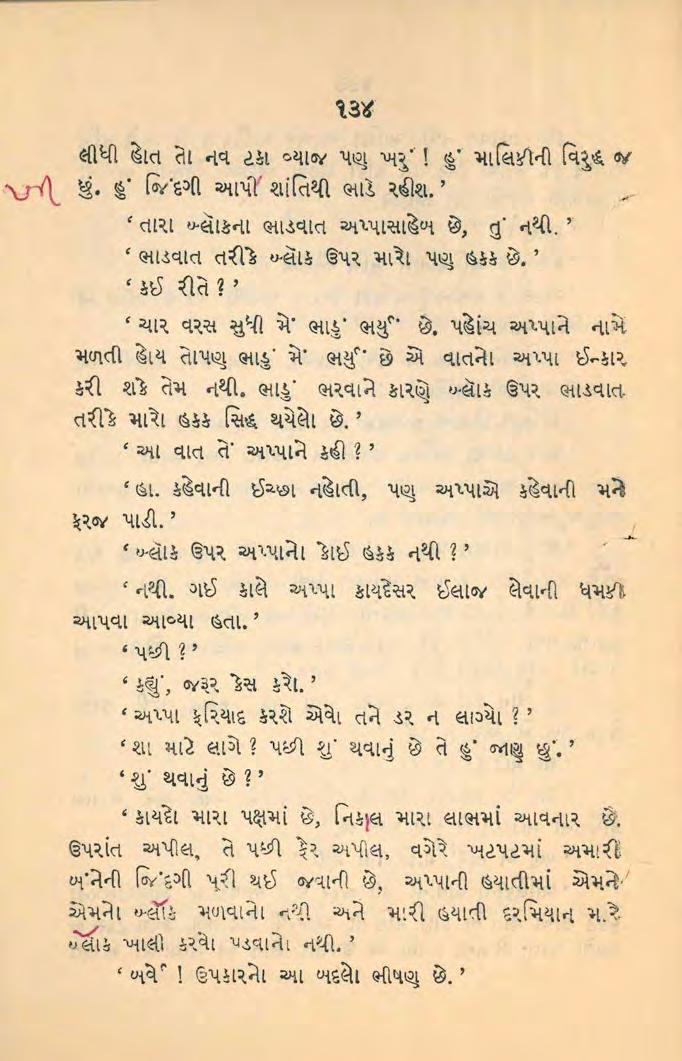 ૧૩૪
લીધી હોત તો નવ ટકા વ્યાજ પણ ખરું ! હું માલિકીની વિરુદ્ધ જ
છું. હું જિંદગી આપી શાંતિથી ભાડે રહીશ.’
ખી
‘તારા બ્લૉકના ભાડવાત અપ્પાસાહેબ છે, તું નથી.’
‘ભાડવાત તરીકે બ્લૉક ઉપર મારો પણ હક્ક છે.’
‘કઈ રીતે ?’
‘ચાર વરસ સુધી મેં ભાડું ભર્યું છે. પહોંચ અપ્પાને નામે
મળતી હોય તોપણ ભાડું મેં ભર્યું છે એ વાતનો અપ્પા ઈન્કાર
કરી શકે તેમ નથી. ભાડું ભરવાને કારણે બ્લૉક ઉપર ભાડવાત
તરીકે મારો હક્ક સિદ્ધ થયેલો છે.’
‘આ વાત તેં અપ્પાને કહી ?’
‘હા. કહેવાની ઈચ્છા નહોતી, પણ અપ્પાએ કહેવાની મને
ફરજ પાડી.’
‘બ્લૉક ઉપર અપ્પાનો કોઈ હક્ક નથી ?’
‘નથી. ગઈ કાલે અપ્પા કાયદેસર ઈલાજ લેવાની ધમકી
આપવા આવ્યા હતા.’
‘પછી ?’
‘કહ્યું, જરૂર કેસ કરો.’
‘અપ્પા ફરિયાદ કરશે એવો તને ડર ન લાગ્યો ?’
‘શા માટે લાગે ? પછી શું થવાનું છે તે હું જાણુ છું.’
‘શું થવાનું છે ?’
‘કાયદો મારા પક્ષમાં છે, નિકાલ મારા લાભમાં આવનાર છે.
ઉપરાંત અપીલ, તે પછી ફેર અપીલ, વગેરે ખટપટમાં અમારી
બંનેની જિંદગી પૂરી થઈ જવાની છે, અપ્પાની હયાતીમાં એમને
એમનો બ્લૉક મળવાનો નથી અને મારી હયાતી દરમિયાન મારે
બ્લૉક ખાલી કરવો પડવાનો નથી.’
‘બર્વે ! ઉપકારનો આ બદલો ભીષણ છે.’